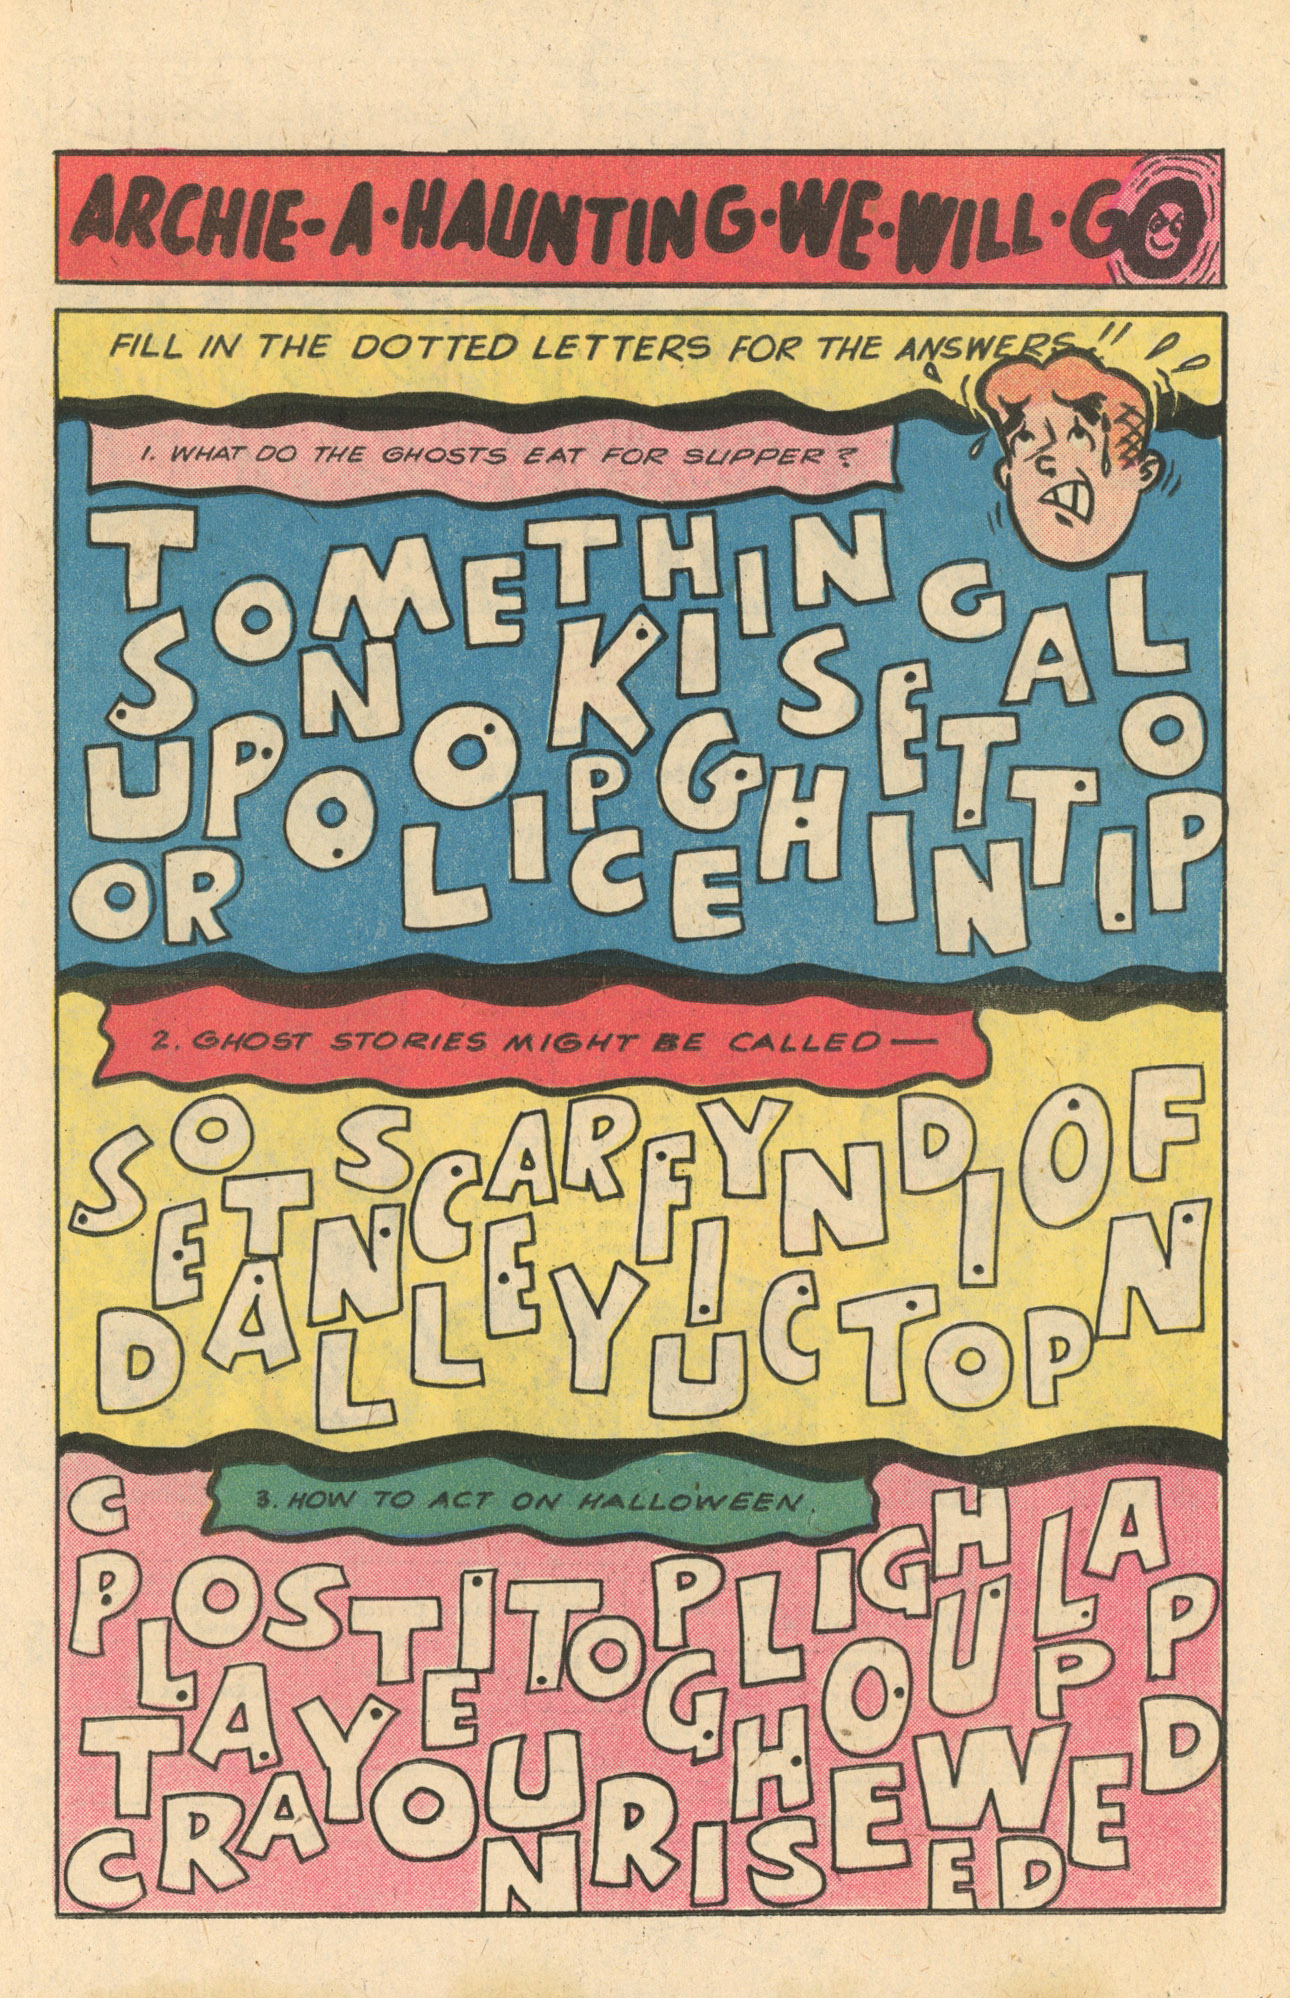 ARCHIE-A-HAUNTING-WE-WILL-GO
FILL IN THE DOTTED LETTERS FOR THE ANSWERS!!
1. WHAT DO THE GHOSTS EAT FOR SUPPER?
TOMETHINGAL
SNKISEO
UPOOIPGHETTIP
ORLICEIN
2. GHOST STORIES MIGHT BE CALLED—
SOSCARFYNDIOF
SETNCEIN
DALLYUCTOP
3. HOW TO ACT ON HALLOWEEN.
CHLA
PLOSTITOPLIGHUPP
TLAYEGHOWD
CRAYOUNRISEEDE